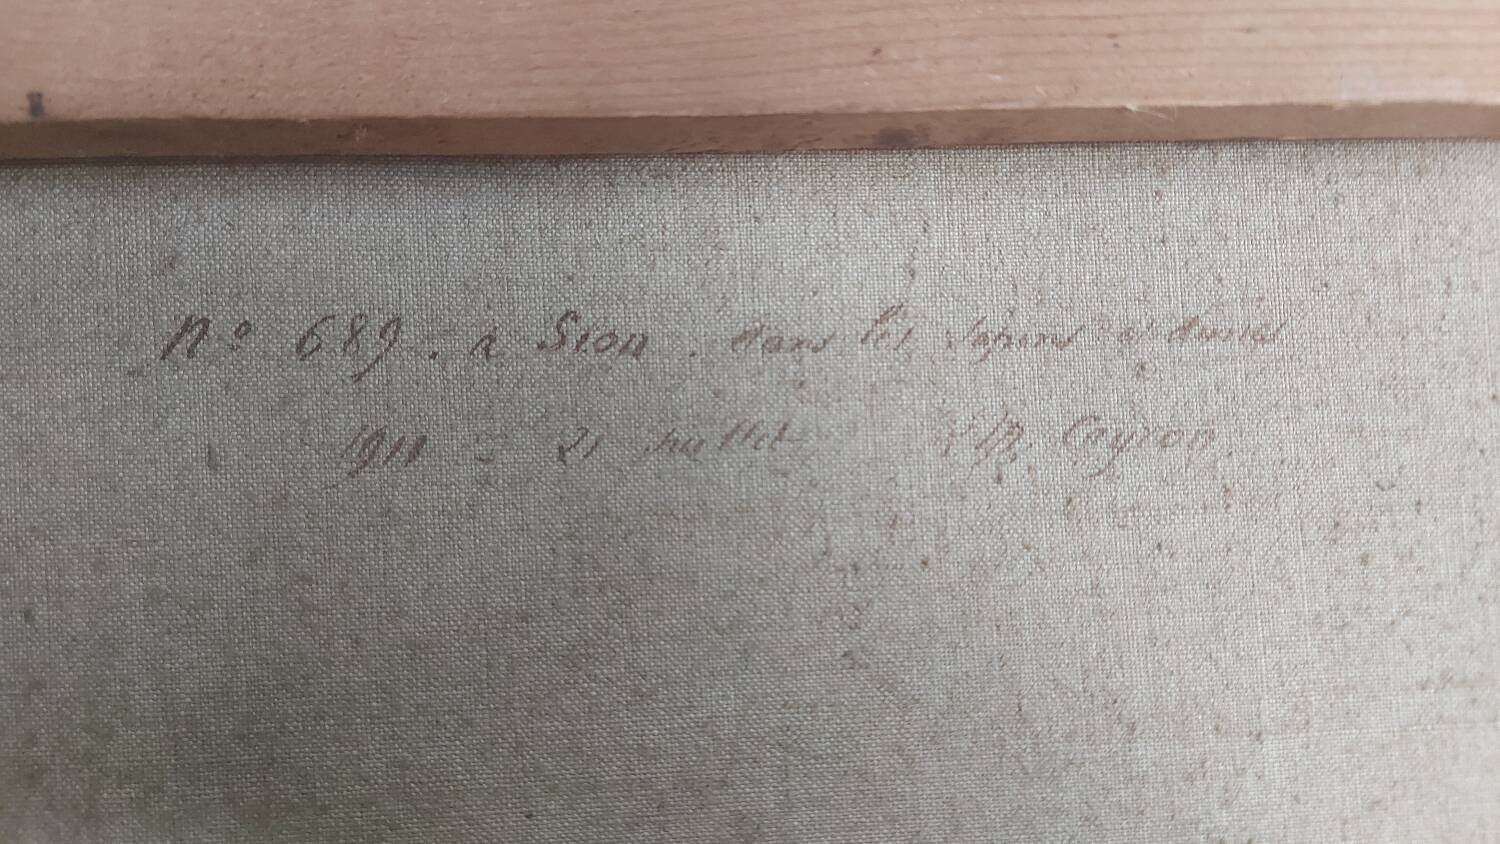 No 689. à Sion. dans les Sapins
1911 = 21 juillet Ceyron